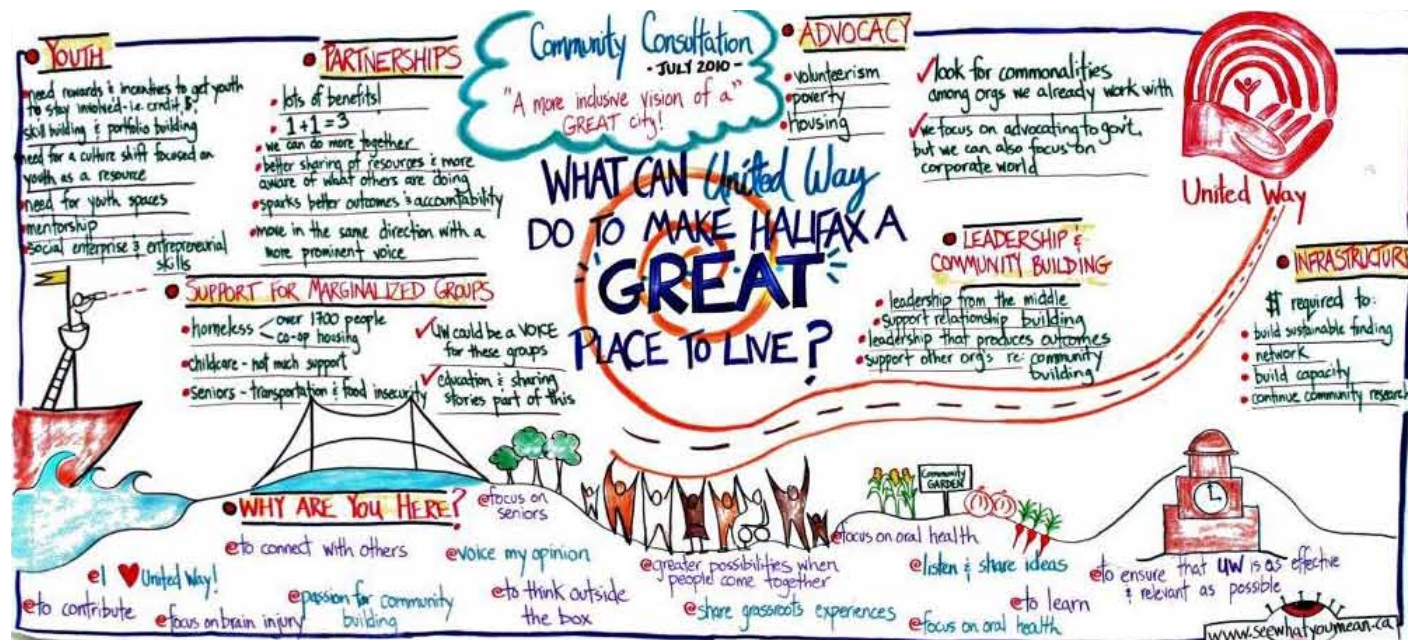 Community Consultation
- JULY 2010 -
"A more inclusive vision of a"
GREAT city!
WHAT CAN United Way
DO TO MAKE HALIFAX A
GREAT
PLACE TO LIVE?
YOUTH
need rewards & incentives to get youth
to stay involved - i.e. credit, $,
skill building & portfolio building
need for a culture shift focused on
youth as a resource
need for youth spaces
mentorship
social enterprise & entrepreneurial
skills
PARTNERSHIPS
lots of benefits!
1+1=3
we can do more together
better sharing of resources & more
aware of what others are doing
sparks better outcomes & accountability
move in the same direction with a
more prominent voice
SUPPORT FOR MARGINALIZED GROUPS
homeless < over 1700 people
co-op housing
childcare - not much support
seniors - transportation & food insecurity
UW could be a VOICE
for these groups
education & sharing
stories part of this
ADVOCACY
volunteerism
poverty
housing
look for commonalities
among orgs we already work with
we focus on advocating to gov't,
but we can also focus on
corporate world
United Way
LEADERSHIP &
COMMUNITY BUILDING
leadership from the middle
support relationship building
leadership that produces outcomes
support other org's re: community
building
INFRASTRUCTURE
$ required to:
build sustainable funding
network
build capacity
continue community research
WHY ARE YOU HERE?
focus on
seniors
to connect with others
voice my opinion
I ♥ United Way!
to contribute
focus on brain injury
passion for community
building
to think outside
the box
greater possibilities when
people come together
share grassroots experiences
Community
GARDEN
focus on oral health
listen & share ideas
to learn
focus on oral health
to ensure that UW is as effective
& relevant as possible
www.seewhatyoumean.ca